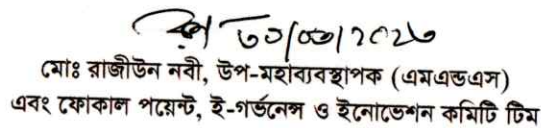 ৩০/০৩/২০২৩
মোঃ রাজীউন নবী, উপ-মহাব্যবস্থাপক (এমএন্ডএস)
এবং ফোকাল পয়েন্ট, ই-গর্ভনেন্স ও ইনোভেশন কমিটি টিম